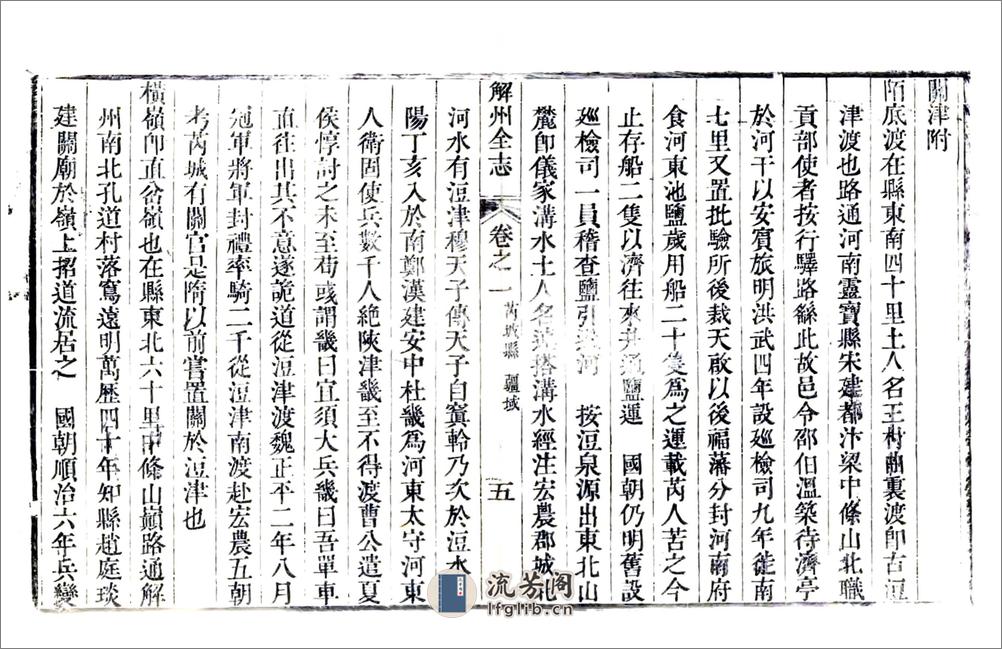 關津附
陌底渡在縣東南四十里土人名王村萠裏渡卽古浢
津渡也路通河南靈寶縣宋建都汴梁中條山北職
貢部使者按行驛路繇此故邑令邵伯溫築待濟亭
於河干以安賓旅明洪武四年設廵檢司九年徙南
七里又置批驗所後裁天啟以後福藩分封河南府
食河東池鹽歲用船二十隻爲之運載芮人苦之今
止存船二隻以濟往來并通鹽運 國朝仍明舊設
廵檢司一員稽查鹽引 河 按浢泉源出東北山
麓卽儀家溝水土人名 塔溝水經注宏農郡城北
解州全志 卷之一 芮城縣 疆域 五
河水有浢津穆天子傳天子自窴軨乃次於浢水
陽丁亥入於南鄭漢建安中杜畿爲河東太守河東
人衛固使兵數千人絶陝津畿至不得渡曹公遣夏
侯惇討之未至荀彧謂畿曰宜須大兵畿曰吾單車
直往出其不意遂詭道從浢津渡魏正平二年八月
冠軍將軍封禮率騎二千從浢津南渡赴宏農五朝
考芮城有關官是隋以前嘗置關於浢津也
橫嶺卽直岔嶺也在縣東北六十里中條山巔路通解
州南北孔道村落寫遠明萬歷四十年知縣趙庭琰
建關廟於嶺上招道流居之 國朝順治六年兵變
流芳阁
lfglib.cn